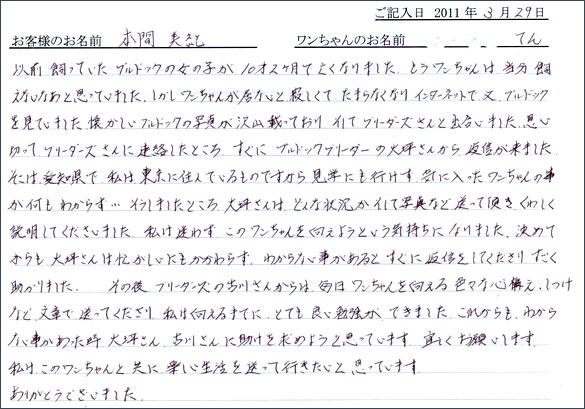 ご記入日 2011年 3月 29日
お客様のお名前 本間 美紀 ワンちゃんのお名前 てん
以前飼っていたブルドックの女の子が10才2ヶ月で亡くなりました。もうワンちゃんは当分飼
えないなあと思っていました。しかしワンちゃんが居ないと寂しくてたまらなくなりインターネットで又、ブルドック
を見ていました。懐かしいブルドックの写真が沢山載っており、そしてブリーダーズさんと出合いました。思い
切ってブリーダーズさんに連絡したところ、すぐにブルドックブリーダーの大坪さんから返信が来ました。
そこは、愛知県で私は東京に住んでいるものですから見学にも行けず、気に入ったワンちゃんの事
が何もわからず… そうしましたところ、大坪さんは、どんな状況かそして写真など送って頂き、くわしく
説明してくださいました。私は迷わずこのワンちゃんを向えようという気持ちになりました。決めて
からも大坪さんは忙がしいにもかかわらず、わからない事があるとすぐに返信をしてくださりすごく
助かりました。 その後ブリーダーズの古川さんからは、毎日ワンちゃんを向える色々な心構え、しつけ
など、文章で送ってくださり、私は向えるまでに、とても良い勉強ができました。これからも、わから
ない事があった時、大坪さん、古川さんに助けを求めようと思っています。宜しくお願いします。
私は、このワンちゃんと共に楽しい生活を送って行きたいと思っています。
ありがとうございました。